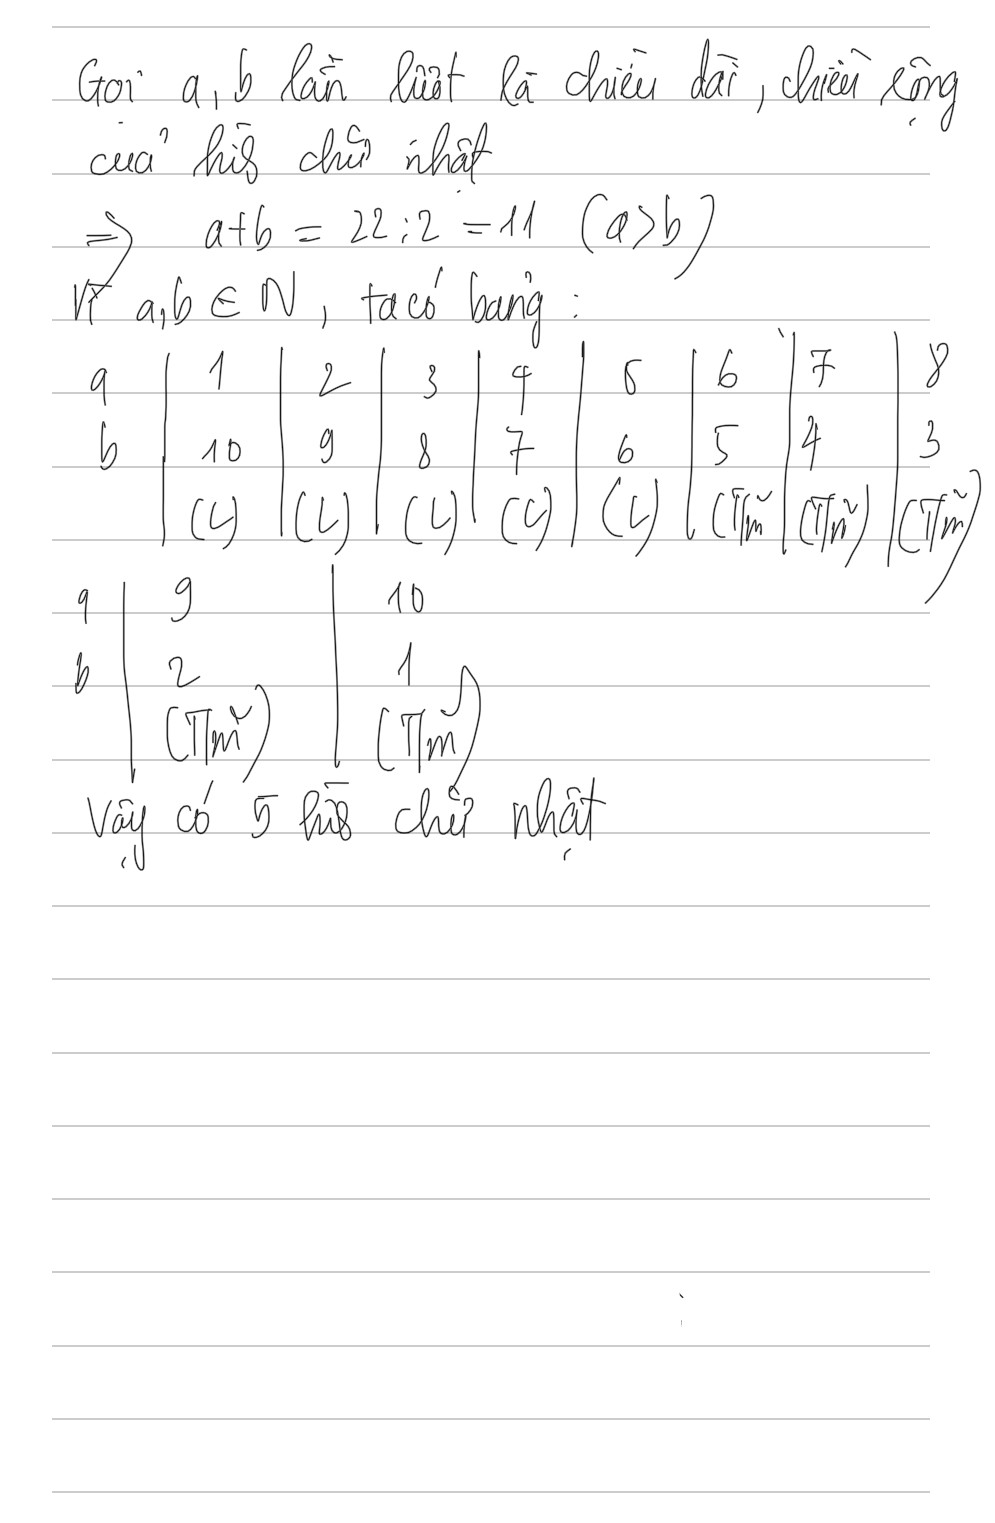 Gọi a, b lần lượt là chiều dài, chiều rộng
của hình chữ nhật
=> a+b = 22:2 = 11 (a>b)
Vì a,b ∈ N, ta có bảng:
a | 1 | 2 | 3 | 4 | 5 | 6 | 7 | 8
b | 10 | 9 | 8 | 7 | 6 | 5 | 4 | 3
(L) | (L) | (L) | (L) | (L) | (Tm | (Tm) | (Tm)
a | 9 | 10
b | 2 | 1
(Tm) | (Tm)
Vậy có 5 hình chữ nhật